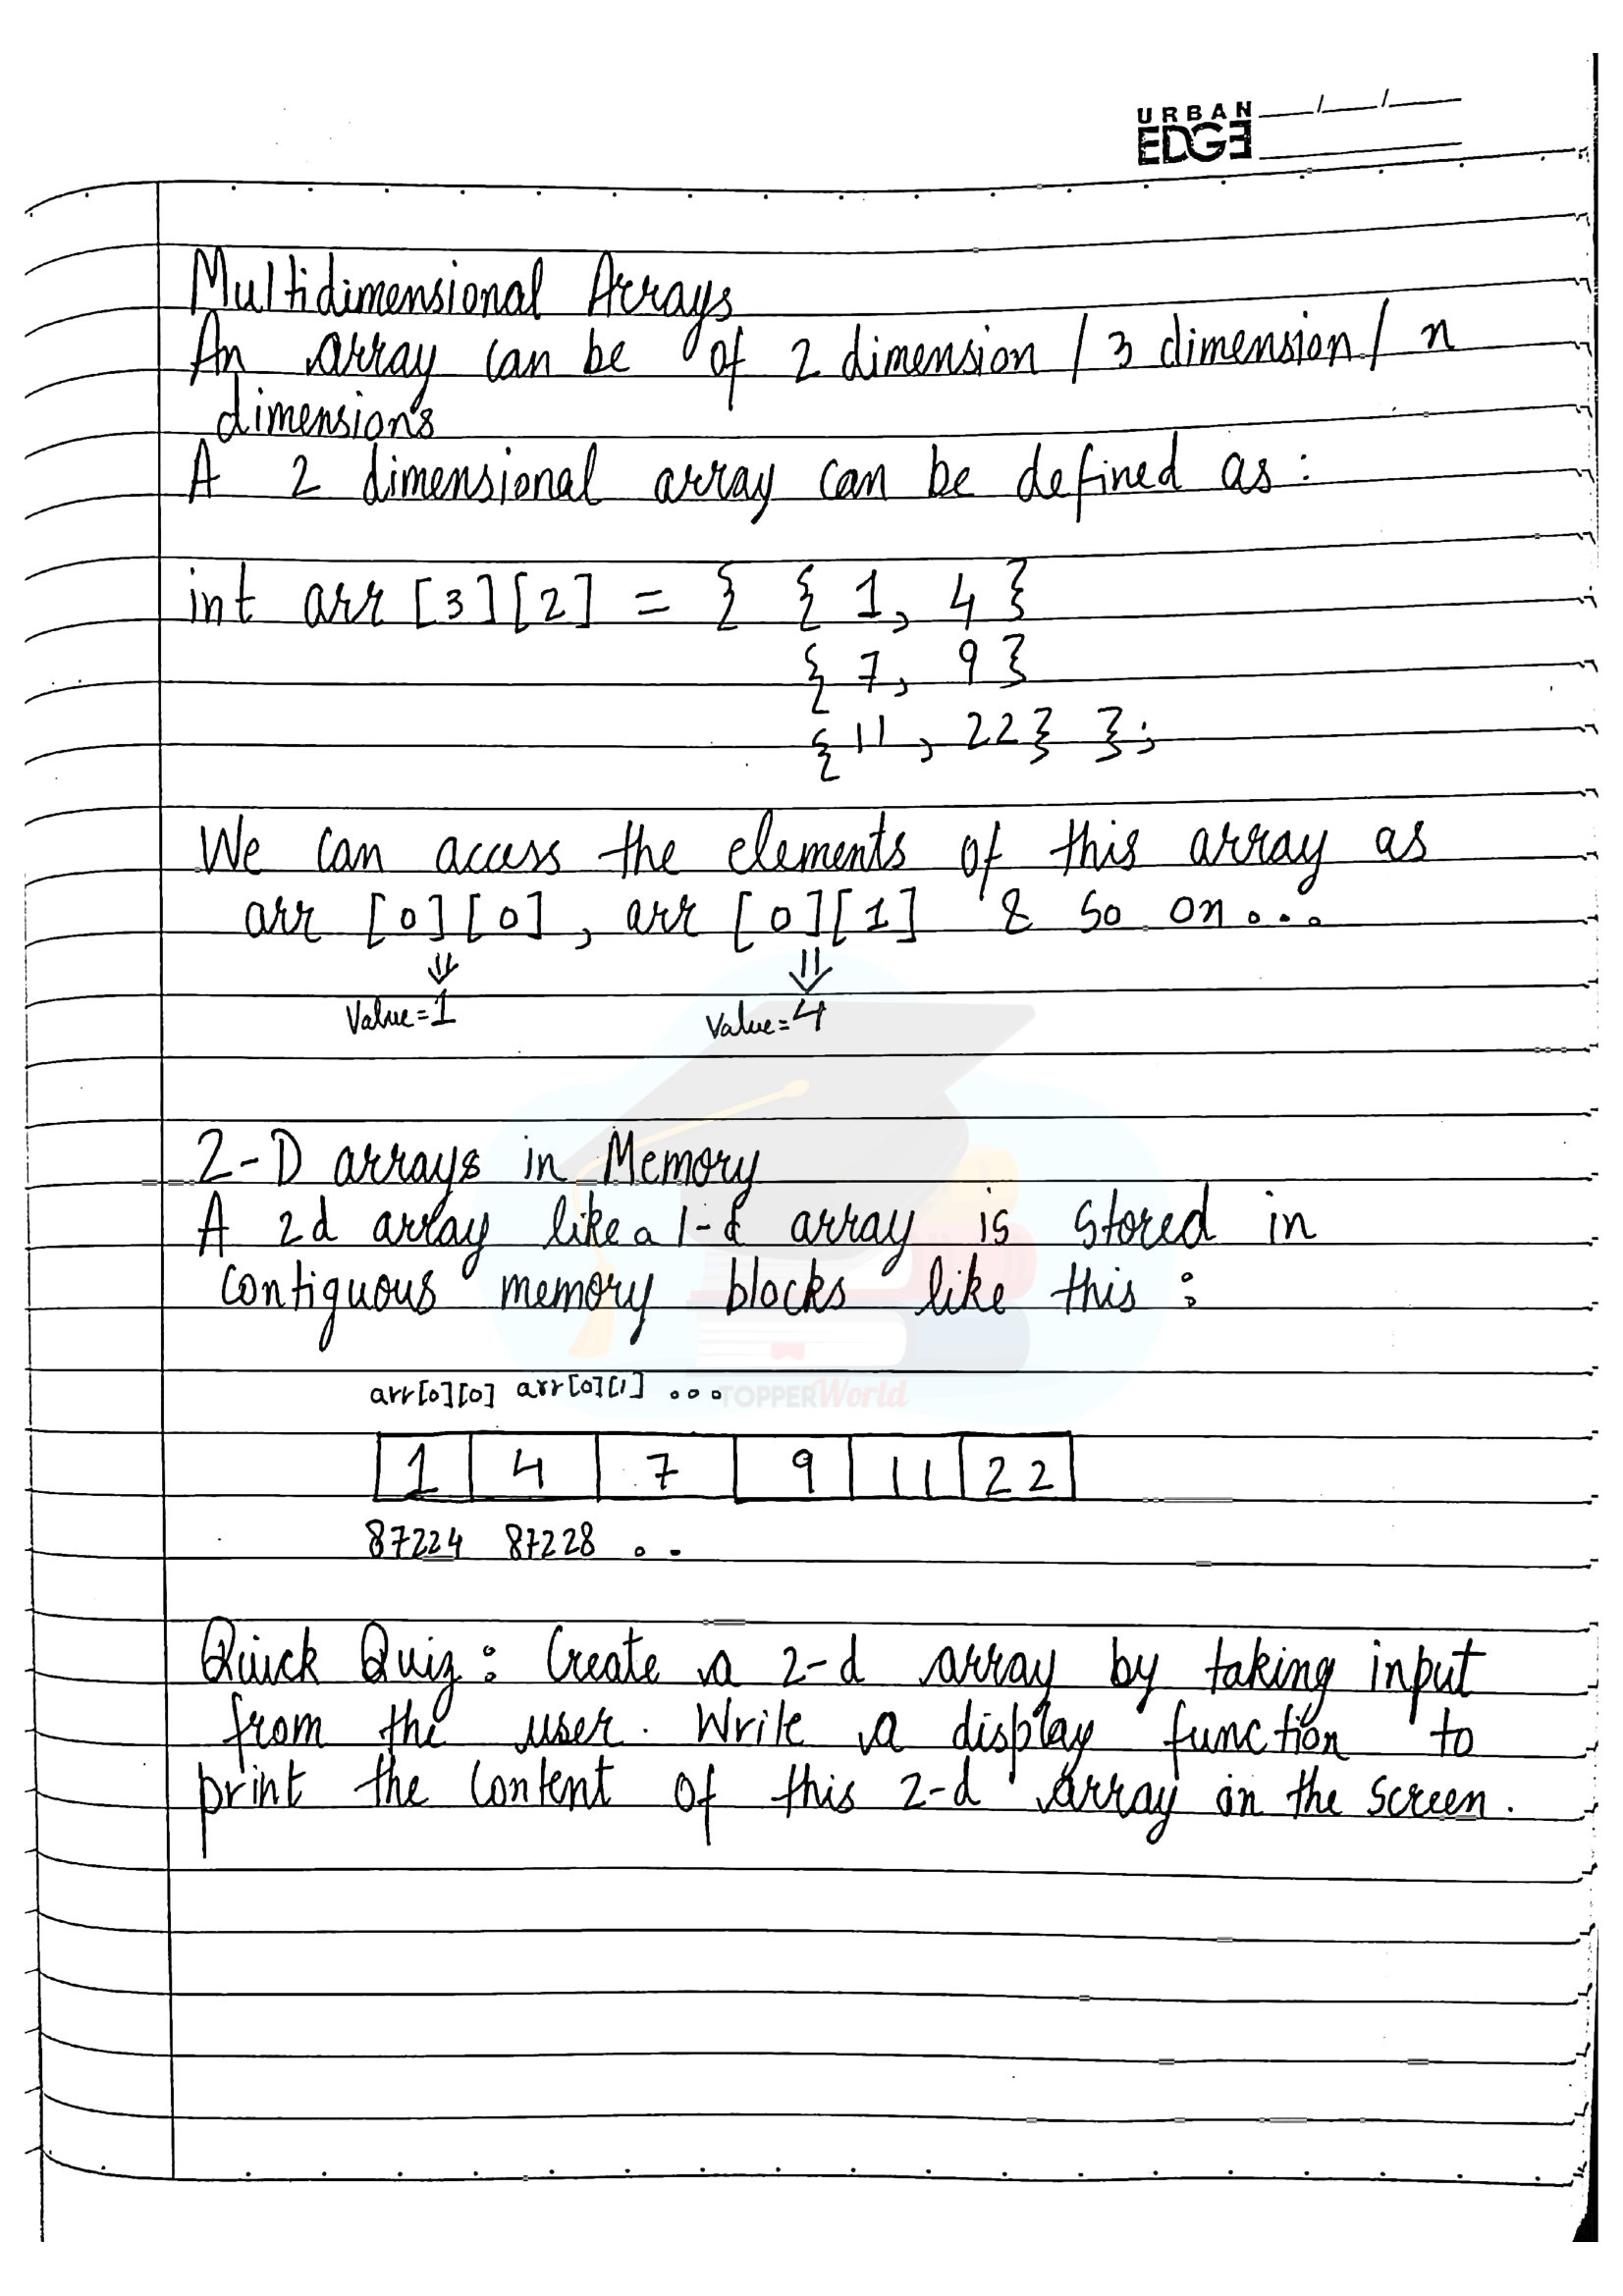 URBAN
EDGE
Multidimensional Arrays
An array can be of 2 dimension / 3 dimension / n
dimensions
A 2 dimensional array can be defined as:
int arr [3][2] = { { 1, 4 }
{ 7, 9 }
{ 11, 22 } };
We can access the elements of this array as
arr [0][0], arr [0][1] & so on...
Value=1 Value=4
2-D arrays in Memory
A 2d array like a 1-d array is stored in
contiguous memory blocks like this:
arr[0][0] arr[0][1] ...
TOPPERWorld
1 4 7 9 11 22
87224 87228 ..
Quick Quiz: Create a 2-d array by taking input
from the user. Write a display function to
print the content of this 2-d array on the screen.